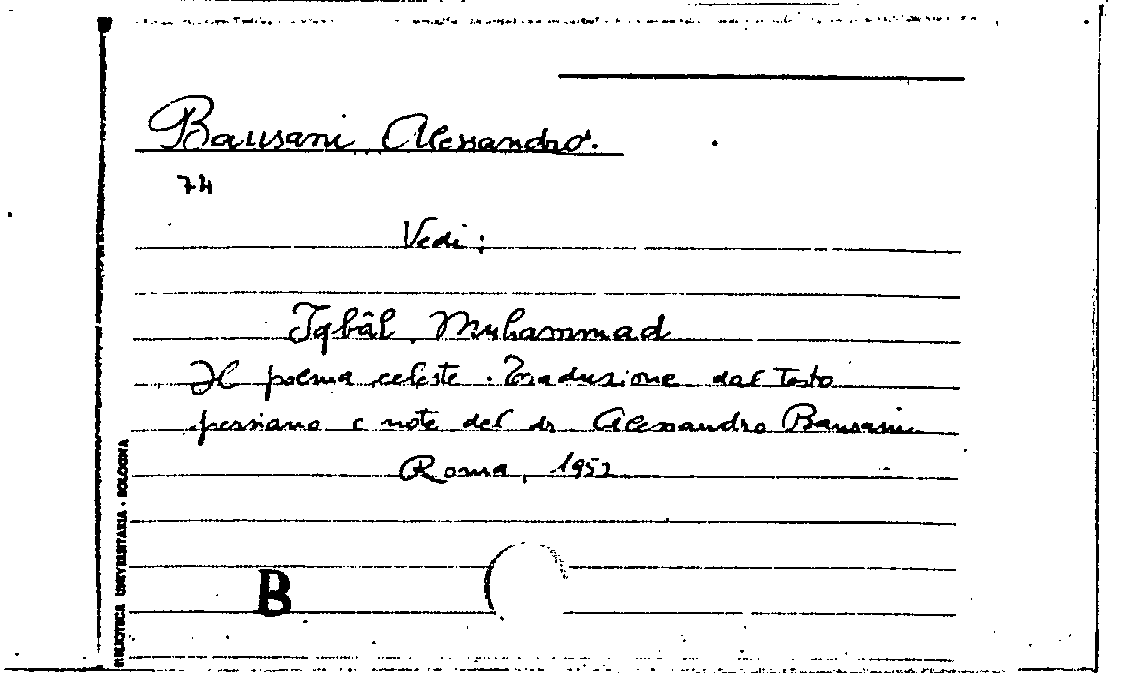 Bausani Alessandro.
74
Vedi:
Iqbâl, Muhammad
Il poema celeste. Traduzione dal Testo
persiano e note del dr. Alessandro Bausani.
Roma, 1952
B
BIBLIOTECA UNIVERSITARIA - BOLOGNA